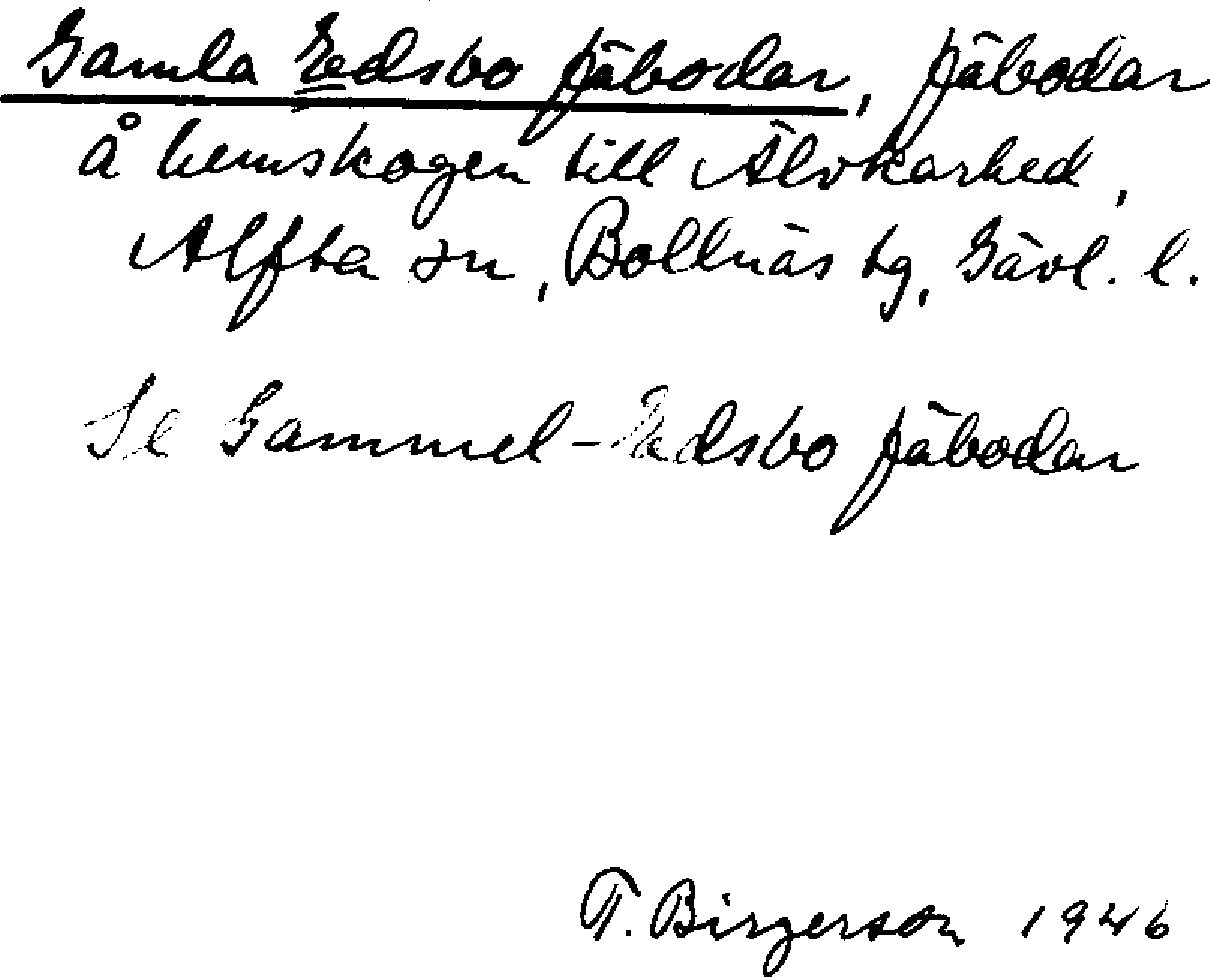 Gamla Edsbo fäbodar, fäbodar
å hemskogen till Älvkarhed,
Alfta sn, Bollnäs tg, Gävl. l.
Se Gammel-Edsbo fäbodar
T. Birgerson 1946